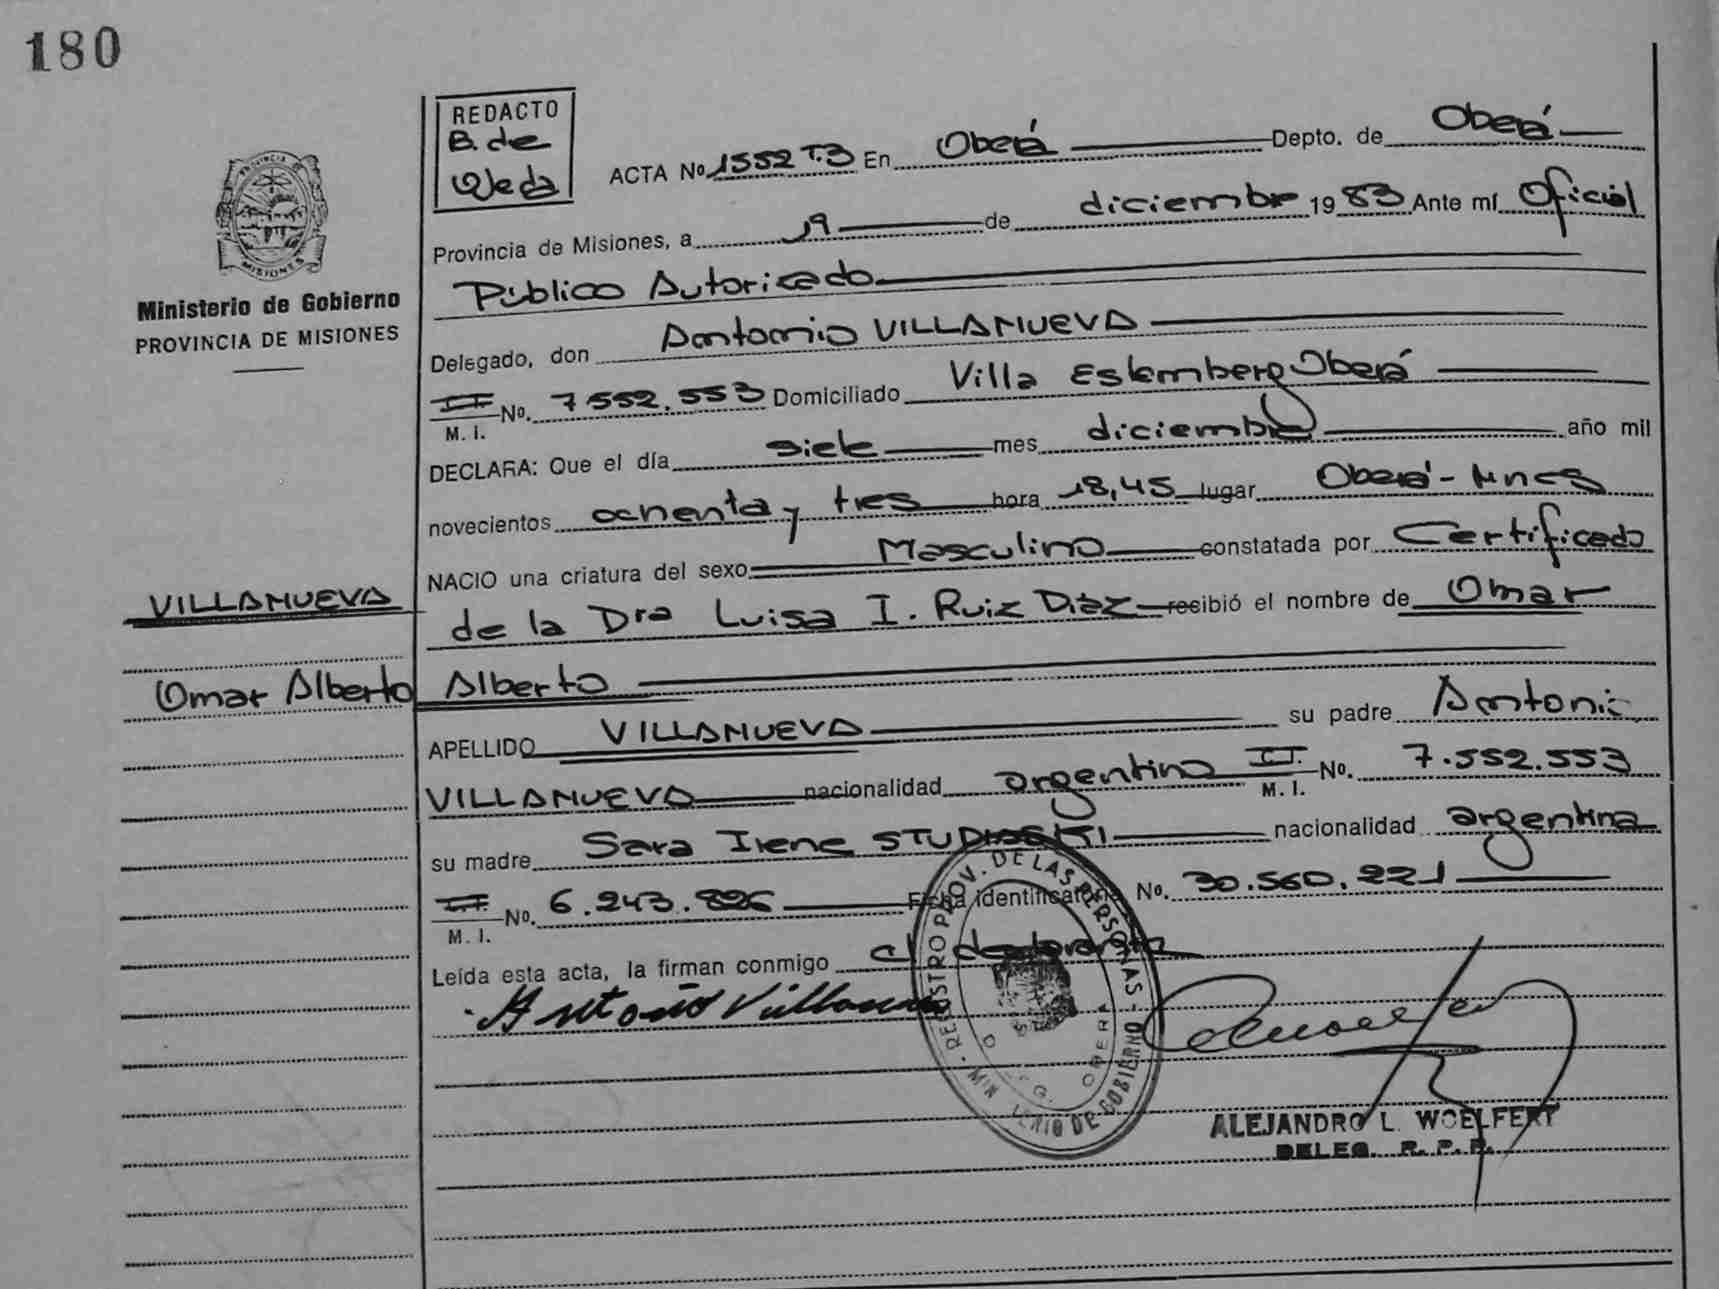 180
REDACTO
B. de
ACTA No 1552 T.3 En Oberá Depto. de Oberá
Provincia de Misiones, a 19 de diciembre 1983 Ante mí Oficial
Público Autorizado
Delegado, don Antonio VILLANUEVA
M. I. No. 7552.553 Domiciliado Villa Oberá
DECLARA: Que el día siete mes diciembre año mil
novecientos ochenta y tres hora 18,45 lugar Oberá - Mnes
NACIO una criatura del sexo Masculino constatada por Certificado
de la Dra Luisa I. Ruiz Díaz recibió el nombre de Omar
Alberto
APELLIDO VILLANUEVA su padre Antonio
VILLANUEVA nacionalidad argentina M. I. No. 7.552.553
su madre Sara Irene nacionalidad argentina
M. I. No. 6.243.826 Ficha identificatoria No. 30.560.221
Leída esta acta, la firman conmigo el declarante
Antonio Villanueva
ALEJANDRO L. WOELFERT
DELEG. R. P. P.
REGISTRO PROV. DE LAS PERSONAS - MINISTERIO DE GOBIERNO
OBERA
PROVINCIA DE
MISIONES
Ministerio de Gobierno
PROVINCIA DE MISIONES
VILLANUEVA
Omar Alberto